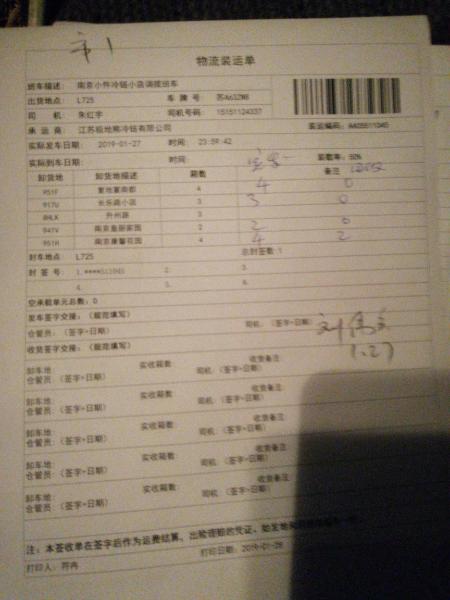 市1
物流装运单
班车描述: 南京小件冷链小店调拨班车
出货地点: L725 车牌号: 苏A63ZW8
司机: 朱红宇 司机号码: 15151124337
承运商: 江苏极地熊冷链有限公司 装运编码:
实际发车日期: 2019-01-27 时间: 23:59:42
实际到车日期: 时间: 装载率: 50%
卸货地 卸货地描述 箱数 备注
951F 复地宴南都 4 4 0
917U 长乐路小店 3 3 0
8HLK 升州路 3
947V 南京皇册家园 2 2 0
951H 南京康馨花园 4 4 2
封车地点 L725 总封签数:1
封签号 1. 2. 3.
4. 5. 6.
空承载单元总数: 0
发车签字交接: (规范填写)
仓管员: (签字+日期) 司机: (签字+日期)
1.27
收货签字交接: (规范填写)
卸车地: 实收箱数: 收货备注:
仓管员: (签字+日期) 司机: (签字+日期)
卸车地: 实收箱数: 收货备注:
仓管员: (签字+日期) 司机: (签字+日期)
卸车地: 实收箱数: 收货备注:
仓管员: (签字+日期) 司机: (签字+日期)
卸车地: 实收箱数: 收货备注:
仓管员: (签字+日期) 司机: (签字+日期)
卸车地: 实收箱数: 收货备注:
仓管员: (签字+日期) 司机: (签字+日期)
注: 本签收单在签字后作为运费结算、出险理赔的凭证。
打印人: 符冉 打印日期: 2019-01-28